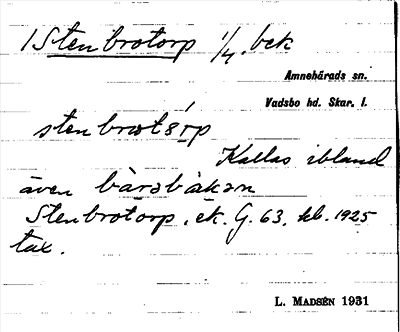 1 Stenbrotorp 1/4 bek
Amnehärads sn.
Vadsbo hd. Skar. l.
stenbrωtó̤rp
Kallas ibland
även bàrəbàkən
Stenbrotorp, ek. G. 63, kb. 1925
tax.
L. MADSÉN 1931